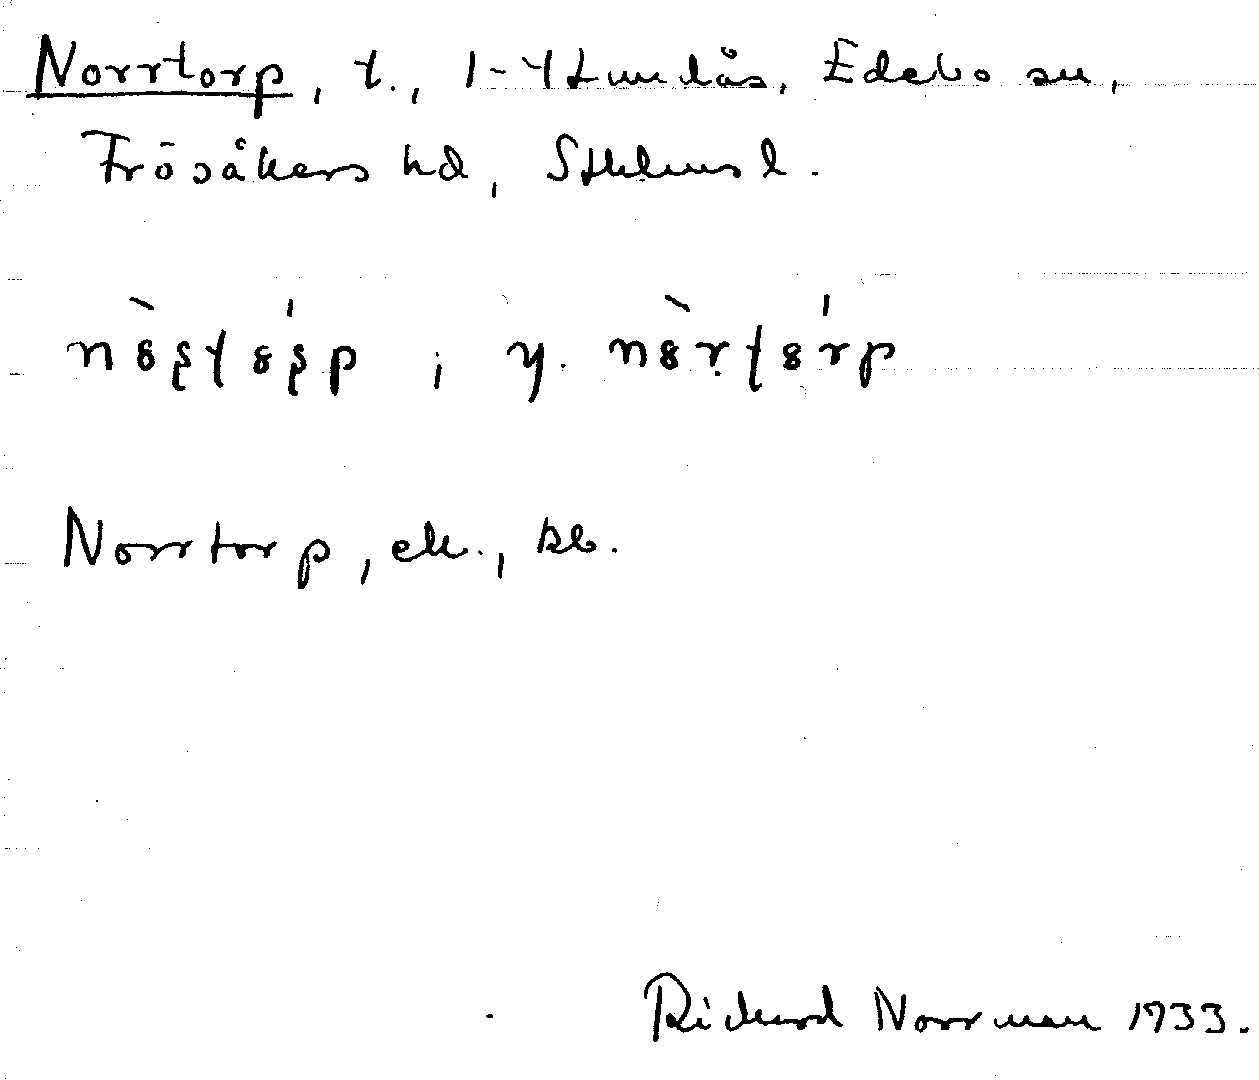 Norrtorp, t., 1-4 Lundås, Edebo sn,
Frösåkers hd, Sthlms l.
y.
Norrtorp, ek., kb.
Richard Norrman 1933.